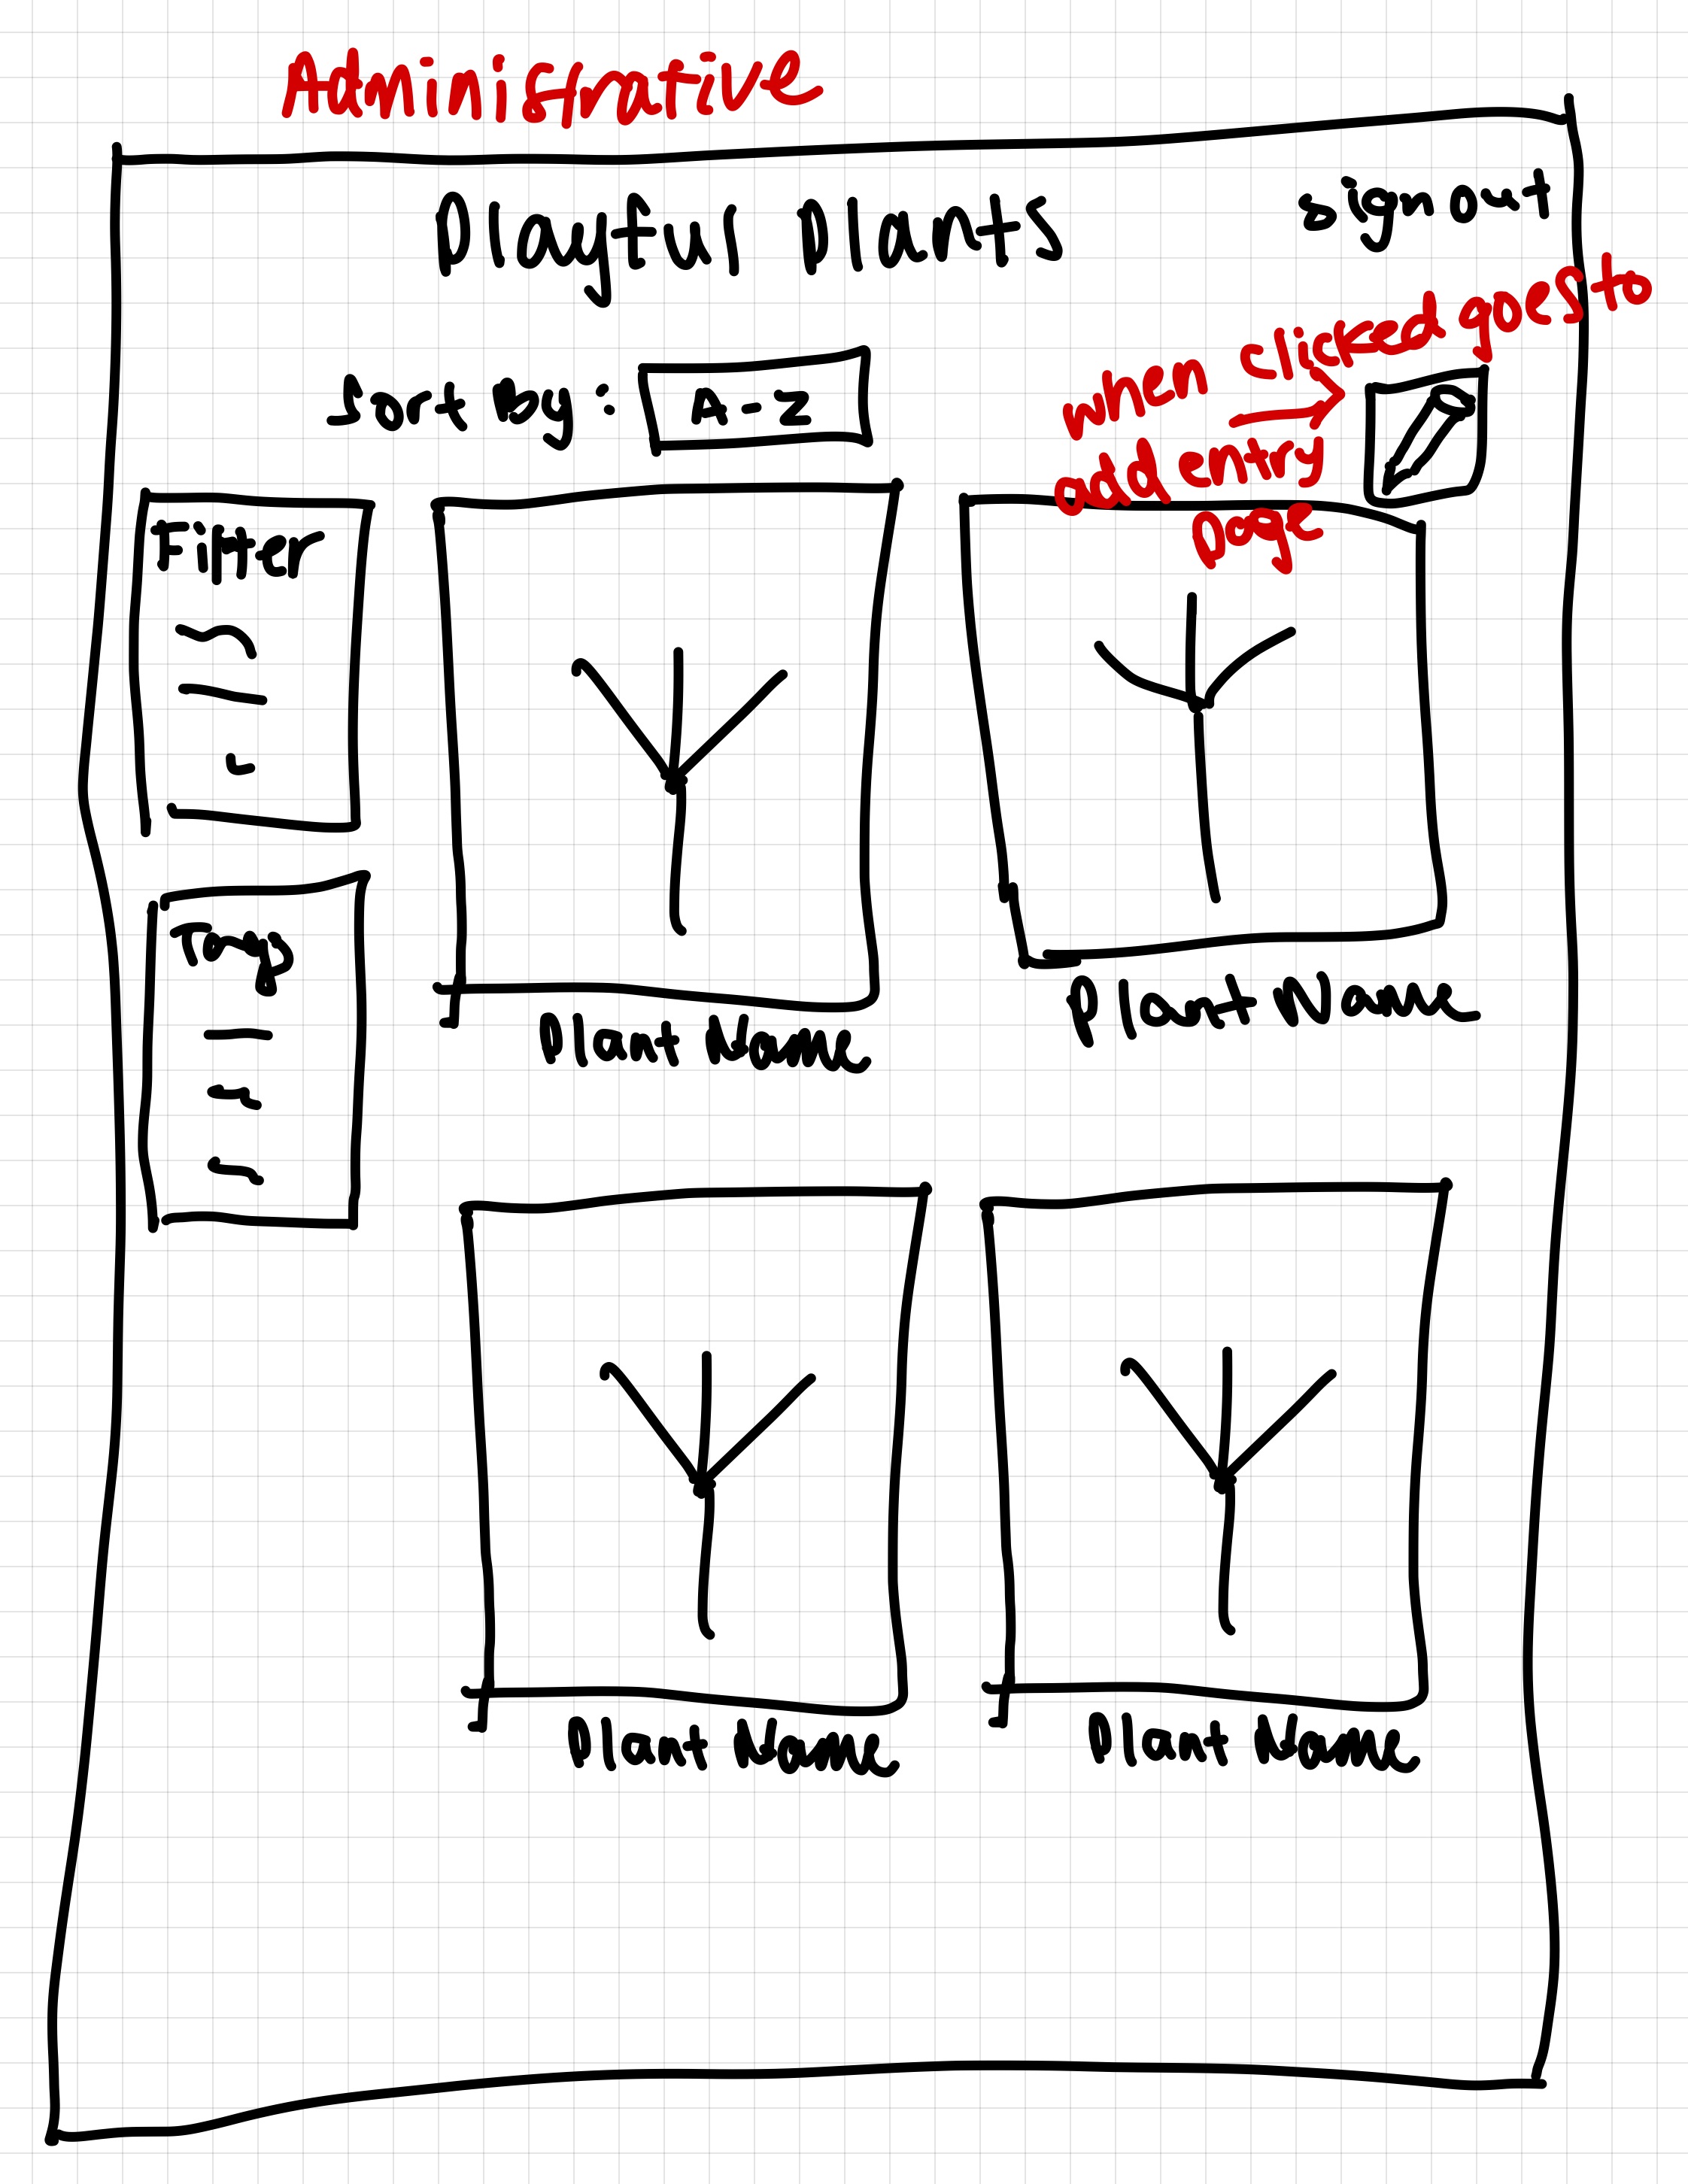 Administrative
Playful Plants
sign out
when clicked goes to
add entry
page
Sort by: A-Z
Filter
Tags
Plant Name
Plant Name
Plant Name
Plant Name